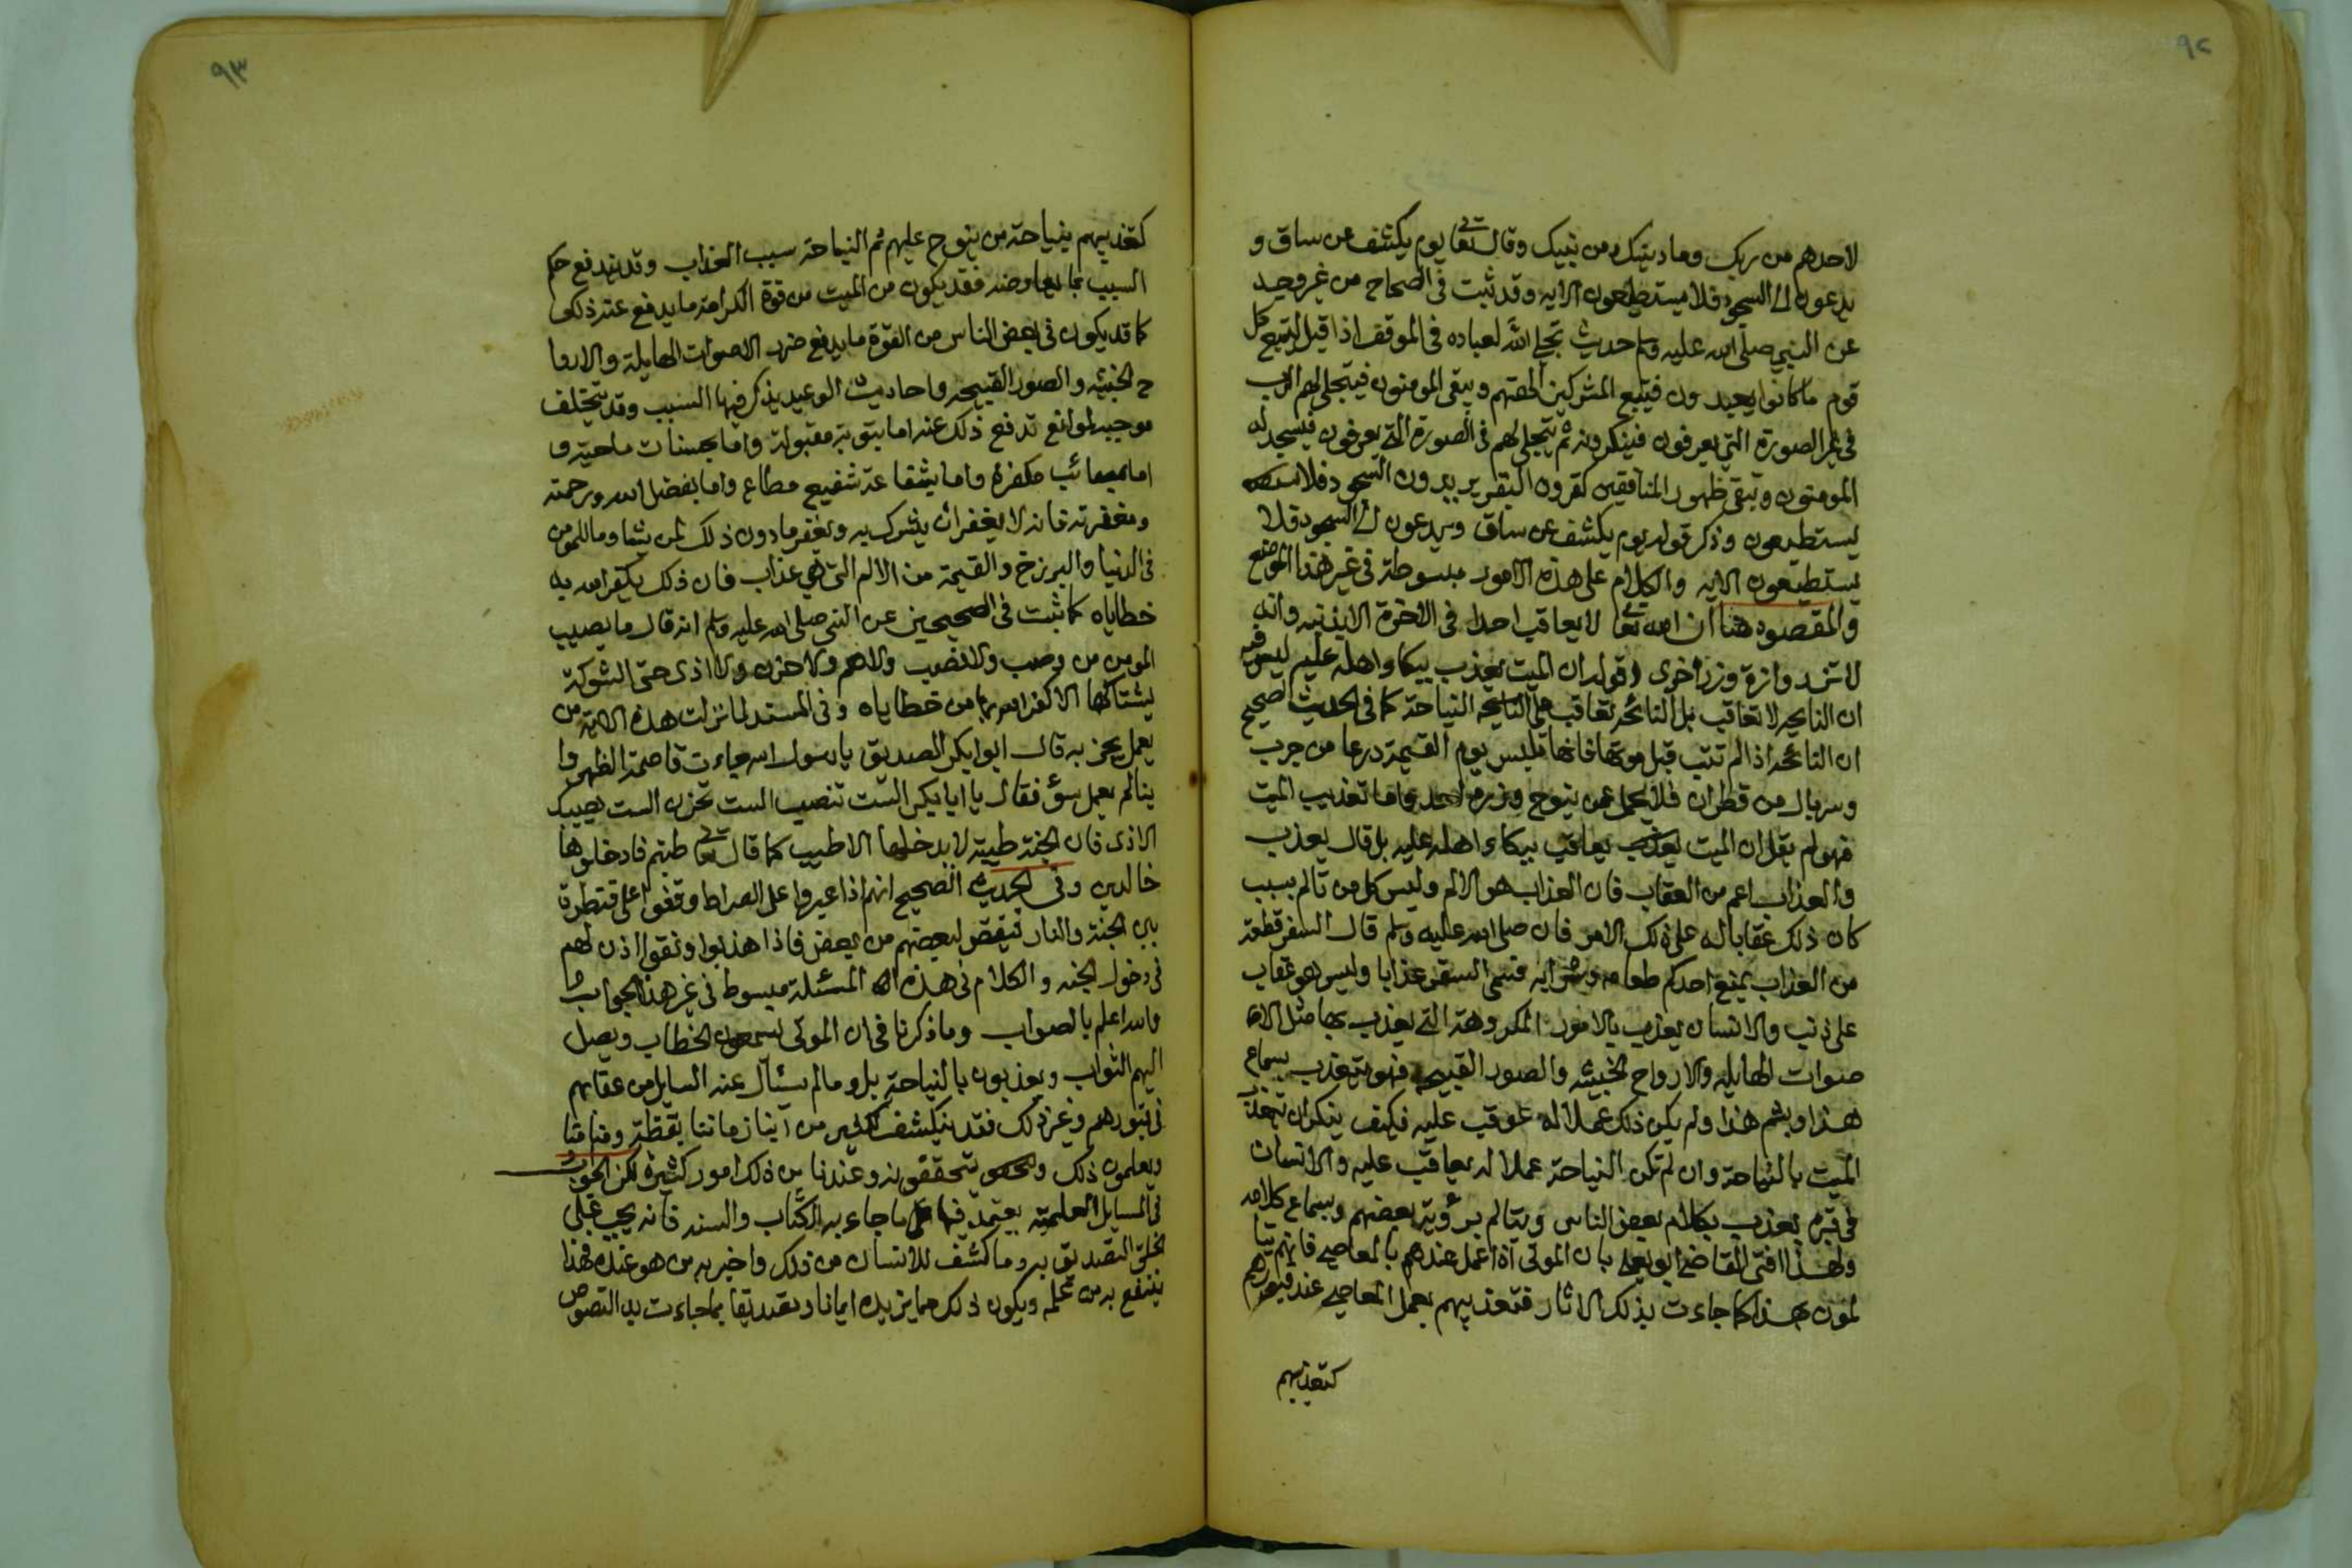 ٩٢
لاحدهم من ربك وما دينك ومن نبيك وقال تعالى يوم يكشف عن ساق و
يدعون الى السجود فلا يستطيعون الايه وقد ثبت في الصحاح من غير وجه
عن النبي صلى الله عليه وسلم حديث تجلي الله لعباده في الموقف اذا قيل ليتبع كل
قوم ما كانوا يعبدون فيتبع المشركين الهتهم ويبقى المومنون فيتجلى لهم الرب
في غير الصورة التي يعرفون فينكرونه ثم يتجلى لهم في الصورة التي يعرفون فيسجد له
المومنون وتبقى ظهور المنافقين كقرون البقر يريدون السجود فلا
يستطيعون وذكر قوله يوم يكشف عن ساق ويدعون الى السجود فلا
يستطيعون الايه والكلام على هذه الامور مبسوطة في غير هذا الموضع
والمقصود هنا ان الله تعالى لا يعاقب احدا في الاخرة الا بذنبه وانه
لا تزر وازرة وزر اخرى وقوله ان الميت يعذب ببكاء اهله عليه ليس فيه
ان النايحه لا تعاقب بل النائحه تعاقب على النياحة كما في الحديث الصحيح
ان النائحه اذا لم تتب قبل موتها فانها تلبس يوم القيمة درعا من جرب
وسربال من قطران فلا يحمل عمن ينوح وزره احد واما تعذيب الميت
فهو لم يقل ان الميت يعاقب ببكاء اهله عليه بل قال يعذب
والعذاب اعم من العقاب فان العذاب هو الالم وليس كل من تالم بسبب
كان ذلك عقابا له على ذلك الامر فان صلى الله عليه وسلم قال السفر قطعة
من العذاب يمنع احدكم طعامه وشرابه فسمى السفر عذابا وليس هو عقاب
على ذنب والانسان يعذب بالامور المكروهة التي يعذب بها مثل الا
صوات الهايله والارواح الخبيثه والصور القبيحه فهو يتعذب بسماع
هذا وبشم هذا ولم يكن ذلك عملا له عوقب عليه فكيف ينكر ان يعذب
الميت بالنياحة وان لم تكن النياحة عملا له يعاقب عليه والانسان
في قبره يعذب بكلام بعض الناس ويتالم برؤية بعضهم وبسماع كلامه
ولهذا افتى القاضي ابو يعلى بان الموتى اذا عمل عندهم بالمعاصي فانهم يتا
لمون بهذا كما جاءت بذلك الاثار فتعذيبهم بعمل المعاصي عند قبورهم
كتعذيبهم
٩٣
كتعذيبهم بنياحة من ينوح عليهم ثم النياحة سبب العذاب وقد يندفع حكم
السبب بما يعاوضه فقد يكون من الميت من قوة الكرامة ما يدفع عنه ذلك
كما قد يكون في بعض الناس من القوة ما يدفع ضرر الاصوات الهايلة والاروا
ح الخبيثه والصور القبيحه واحاديث الوعيد يذكر فيها السبب وقد يتخلف
موجبه لموانع تدفع ذلك عنه اما بتوبة مقبولة واما بحسنات ماحية و
اما بمصائب مكفرة واما بشفاعة شفيع مطاع واما بفضل الله ورحمته
ومغفرته فانه لا يغفر ان يشرك به ويغفر ما دون ذلك لمن يشا وما للمومن
في الدنيا والبرزخ والقيمة من الالم التي هي عذاب فان ذلك يكفر الله به
خطاياه كما ثبت في الصحيحين عن النبي صلى الله عليه وسلم انه قال ما يصيب
المومن من وصب ولا نصب ولا هم ولا حزن ولا اذى حتى الشوكة
يشتاكها الا كفر الله بها من خطاياه وفي المسند لما نزلت هذه الاية من
يعمل يجز به قال ابو ابكر الصديق يا رسول الله جاءت قاصمة الظهر وا
ينا لم يعمل سؤ فقال يا ابا بكر الست تنصب الست تحزن الست يصيبك
الاذى فان الجنة طيبة لا يدخلها الا طيب كما قال تعالى طبتم فادخلوها
خالدين وفي الحديث الصحيح انهم اذا عبروا على الصراط وقفوا على قنطرة
بين الجنة والنار فيقتص لبعضهم من بعض فاذا هذبوا ونقوا اذن لهم
في دخول الجنه والكلام في هذه المسئلة مبسوط في غير هذا الجواب
والله اعلم بالصواب وما ذكرنا في ان الموتى يسمعون الخطاب ويصل
اليهم الثواب ويعذبون بالنياحة بل وما لم يسئال عنه السايل من عقابهم
في قبورهم وغير ذلك فقد ينكشف لكثير من ابناء زماننا يقظة ومناما
ويعلمون ذلك ويتحققونه وعندنا من ذلك امور كثيرة لكن الجواب
في المسايل العلمية يعتمد فيها على ما جاء به الكتاب والسنه فانه يجب على
الخلق التصديق به وما كشف للانسان من ذلك واخبر به من هو عنده فهذا
ينتفع به من علمه ويكون ذلك مما يزيده ايمانا وتصديقا بما جاءت به النصوص